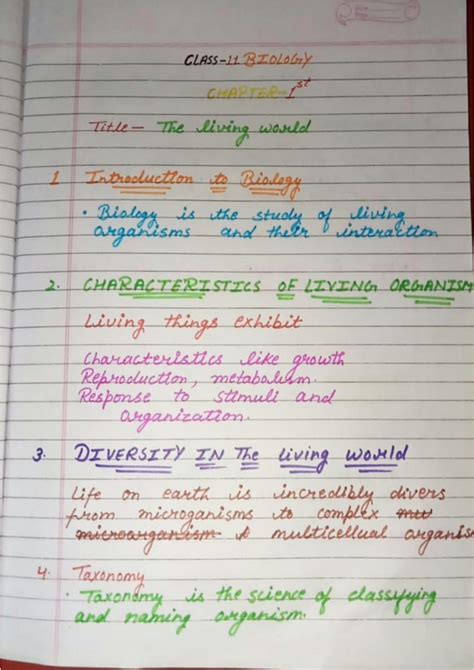 CLASS-11 BIOLOGY
CHAPTER-1st
Title - The living world
1 Introduction to Biology
• Biology is the study of living
organisms and their interaction
2. CHARACTERISTICS OF LIVING ORGANISM
Living things exhibit
Characteristics like growth
Reproduction, metabolism.
Response to stimuli and
Organization.
3. DIVERSITY IN The living world
Life on earth is incredibly divers
from microganisms to complex
microorganism & multicellual organism
4. Taxonomy
• Taxonomy is the science of classifying
and naming organism.